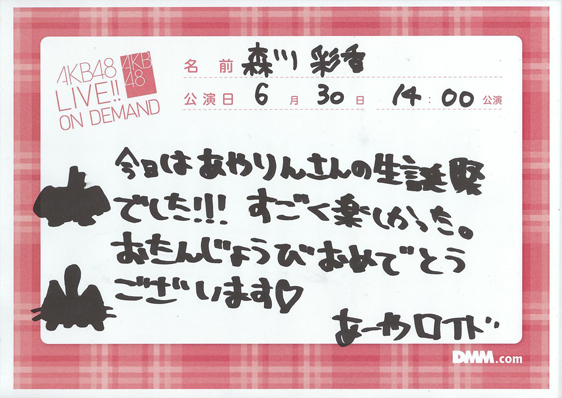 AKB48
LIVE!!
ON DEMAND
AKB
48
名前 森川 彩香
公演日 6月30日 14:00公演
今日はあやりんさんの生誕祭
でした!!! すごく楽しかった。
おたんじょうびおめでとう
ございます♡
あーやロイド
DMM.com